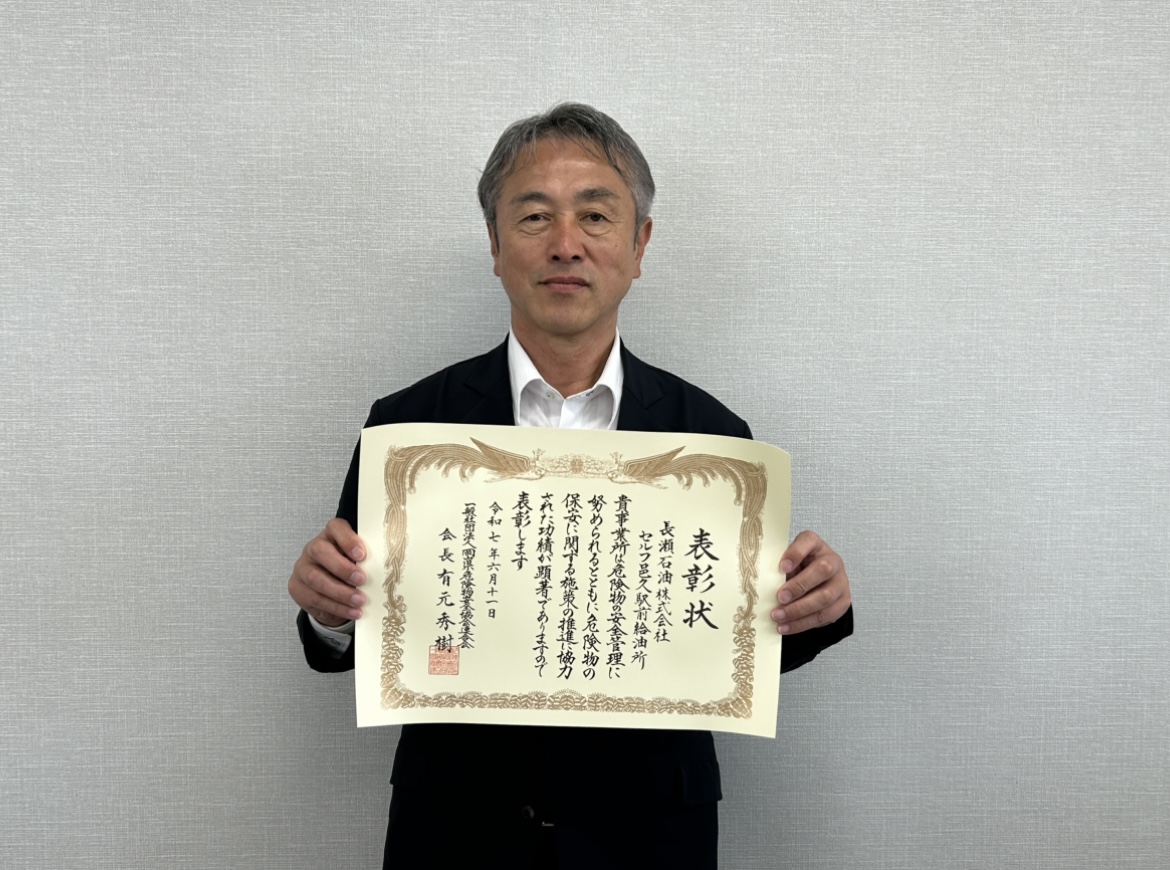 表彰状
長瀬石油株式会社
セルフ邑久駅前給油所
貴事業所は危険物の安全管理に
努められるとともに危険物の
保安に関する施策の推進に協力
された功績が顕著でありますので
表彰します
令和七年六月十一日
一般社団法人岡山県危険物安全協会連合会
会長有元秀樹